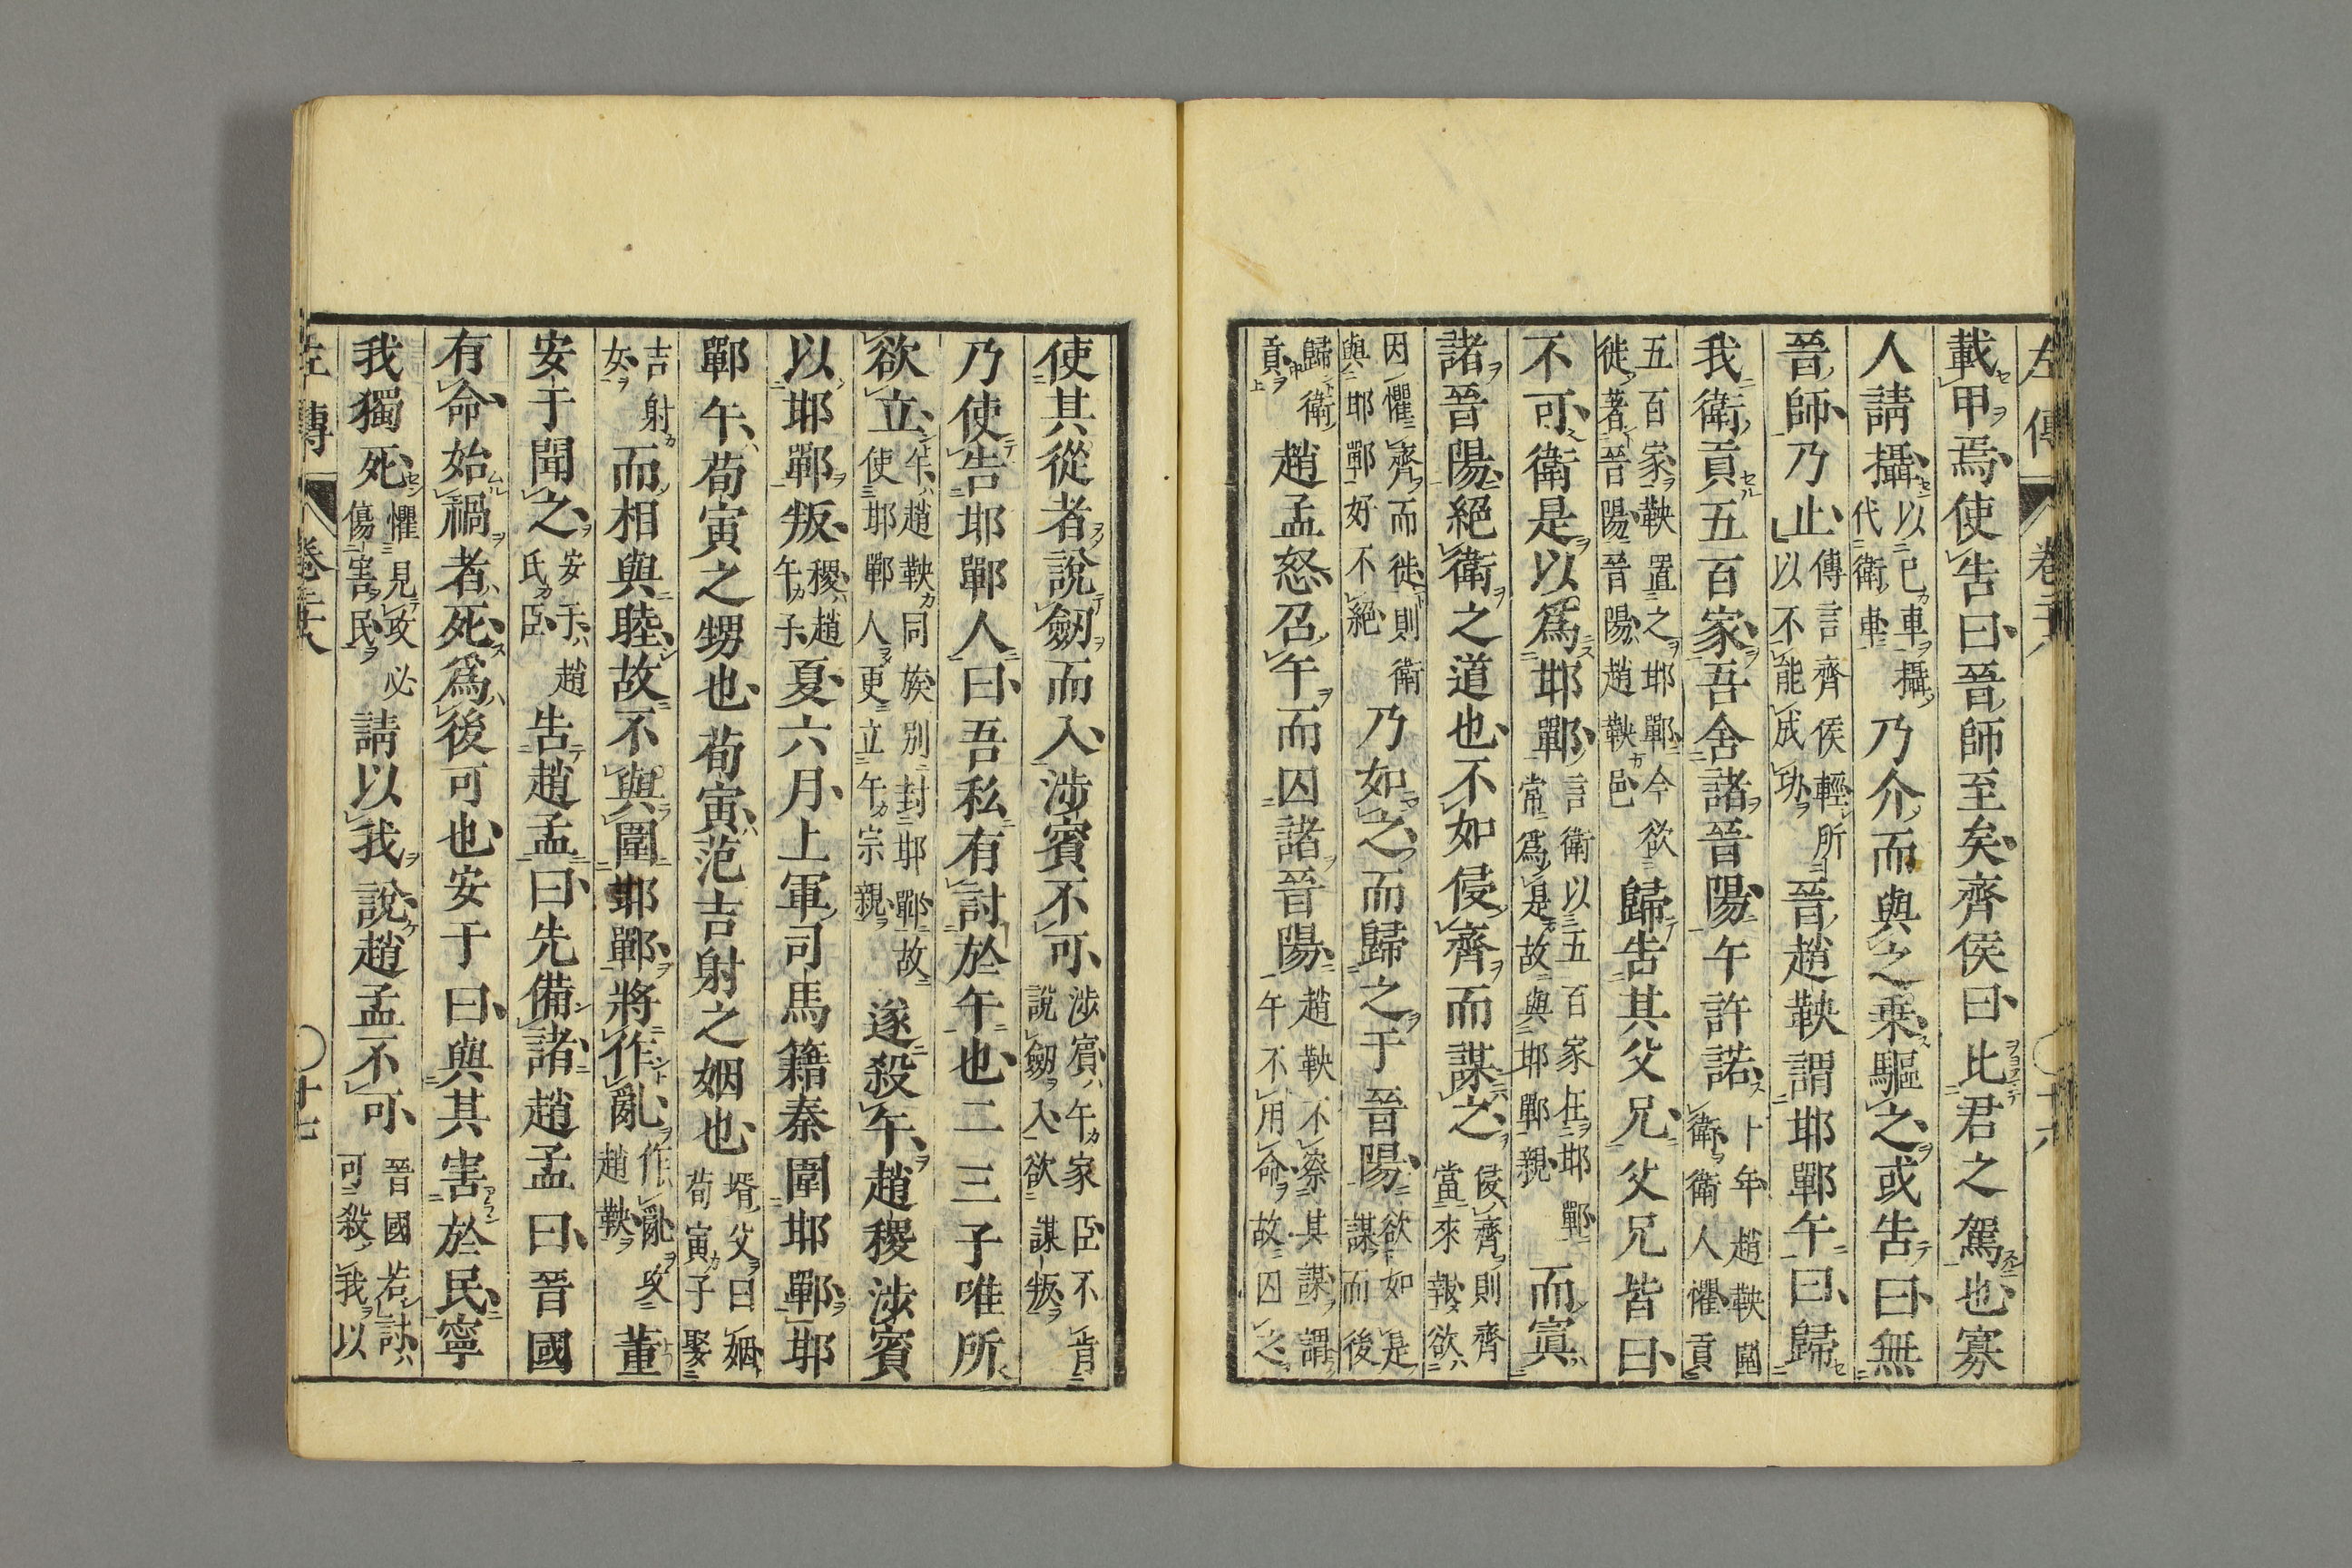 左傳 卷二十八 十六
載甲焉使告曰晉師至矣齊侯曰比君之駕也寡
人請攝以己車攝代衛車乃介而與之乘驅之或告曰無
晉師乃止傳言齊侯輕所以不能成功晉趙鞅謂邯鄲午曰歸
我衛貢五百家吾舍諸晉陽午許諾十年趙鞅圍衛衛人懼貢
五百家鞅置之邯鄲今欲徙著晉陽晉陽趙鞅邑歸告其父兄父兄皆曰
不可衛是以爲邯鄲言衛以五百家在邯鄲常爲是故與邯鄲親而寘
諸晉陽絕衛之道也不如侵齊而謀之侵齊則齊當來報欲
因懼齊而徙則衛與邯鄲好不絕乃如之而歸之于晉陽欲如是謀而後
歸衛貢趙孟怒召午而囚諸晉陽趙鞅不察其謀謂午不用命故囚之
使其從者說劒而入涉賓不可涉賓午家臣不肯說劒入欲謀叛
乃使告邯鄲人曰吾私有討於午也二三子唯所
欲立午趙鞅同族別封邯鄲故使邯鄲人更立午宗親遂殺午趙稷涉賓
以邯鄲叛稷趙午子夏六月上軍司馬籍秦圍邯鄲邯
鄲午荀寅之甥也荀寅范吉射之姻也壻父曰姻荀寅子娶
吉射女而相與睦故不與圍邯鄲將作亂作亂攻趙鞅董
安于聞之安于趙氏臣告趙孟曰先備諸趙孟曰晉國
有命始禍者死爲後可也安于曰與其害於民寧
我獨死懼見攻必傷害民請以我說趙孟不可晉國若討可殺我以
左傳 卷二十八 十七